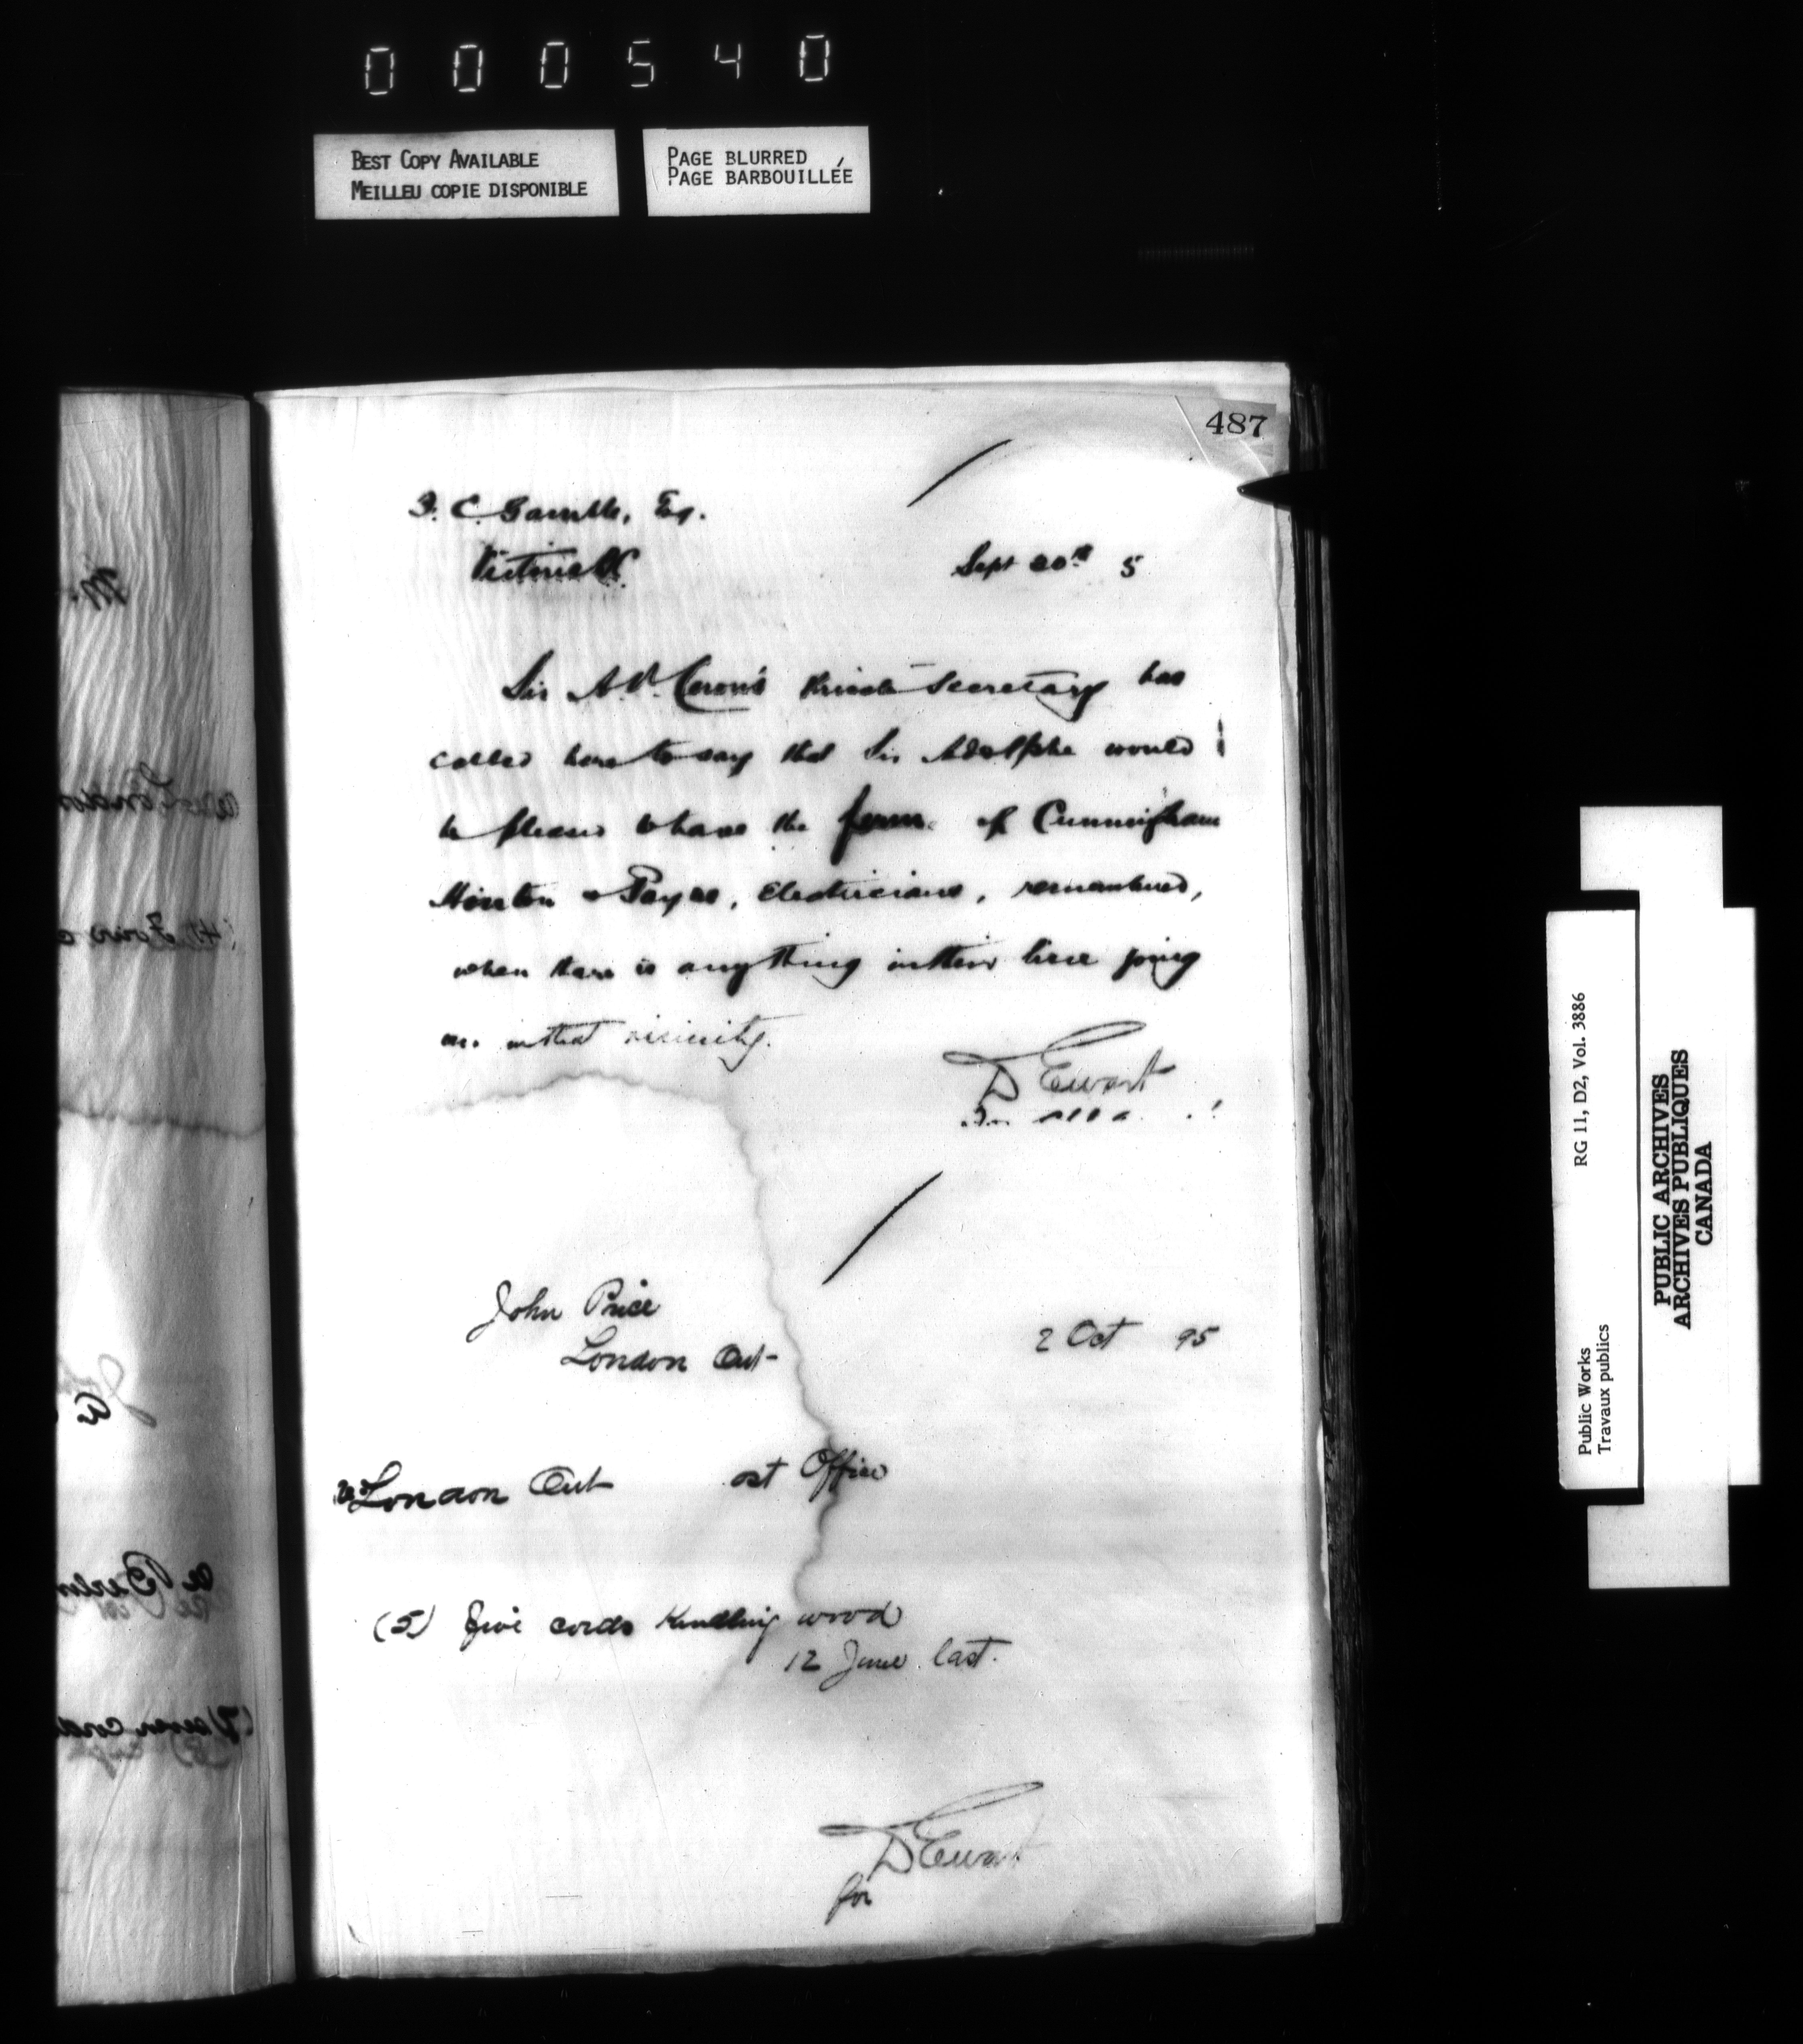 000540
BEST COPY AVAILABLE
MEILLEU COPIE DISPONIBLE
PAGE BLURRED
PAGE BARBOUILLÉE
487
F. C. Gamble, Esq.
Victoria
Sept 20th 5
Sir A. P. Caron's Private Secretary has
called here to say that Sir Adolphe would
be pleased to have the firm of Cunningham
Hinton & Payne, Electricians, remembered,
when there is anything in their line going
on in that vicinity.
D Ewart
John Price
London Ont
2 Oct 95
London Ont ost Office
(5) five cords Kindling wood
12 June last.
D Ewart
for
RG 11, D2, Vol. 3886
Public Works
Travaux publics
PUBLIC ARCHIVES
ARCHIVES PUBLIQUES
CANADA